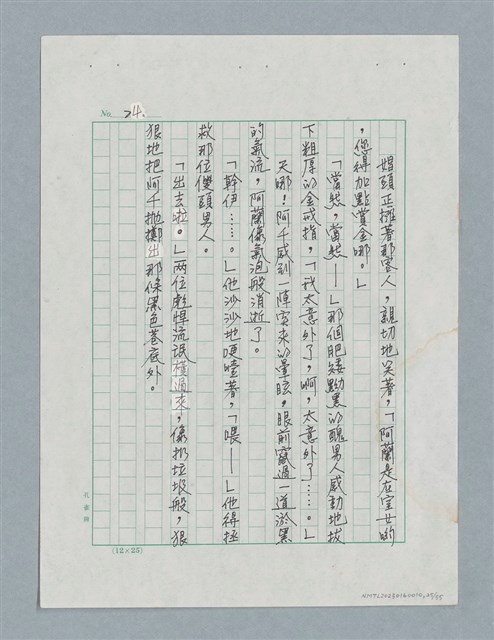 No. 24.
娼頭正擁著那客人,親切地笑著,「阿蘭是在室女喲
,您得加點賞金哪。」
「當然,當然——」那個肥矮黝黑的醜男人感動地拔
下粗厚的金戒指,「我太意外了,啊,太意外了……。」
天哪!阿千感到一陣突來的暈眩,眼前竄過一道淤黑
的氣流,阿蘭像氣泡般消逝了。
「幹伊……。」他沙沙地哽噎著,「喂——」他得拯
救那位雙頭男人。
「出去啦。」兩位彪悍流氓橫過來,像扔垃圾般,狠
狠地把阿千拋擲出那條黑色巷底外。
(12×25)